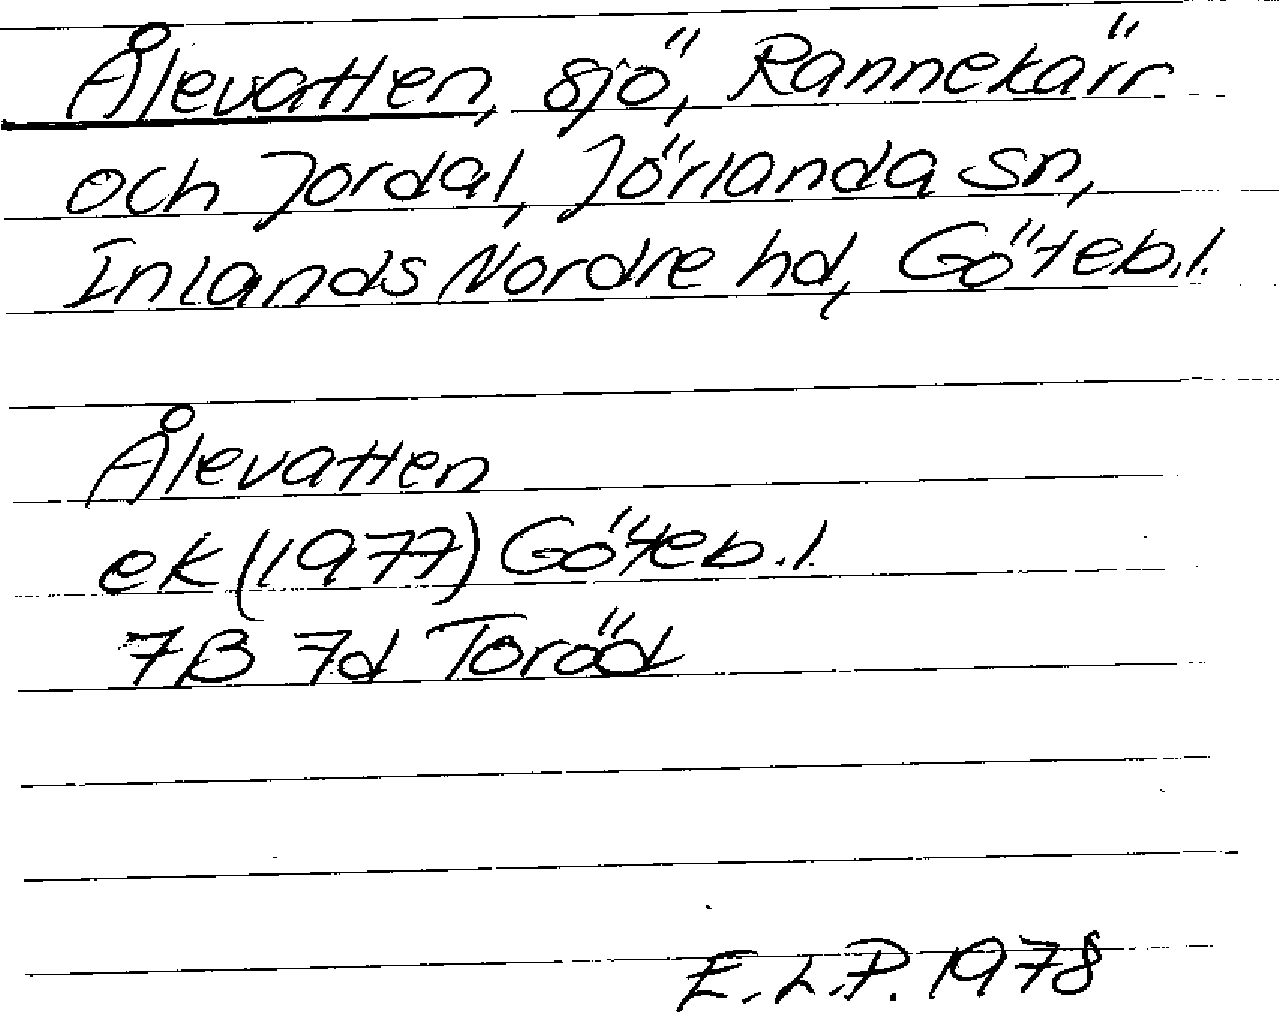 Ålevatten, sjö, Rannekärr
och Jordal, Jörlanda sn,
Inlands Nordre hd, Göteb.l.
Ålevatten
ek (1977) Göteb.l.
7B 7d Toröd
E.L.P. 1978